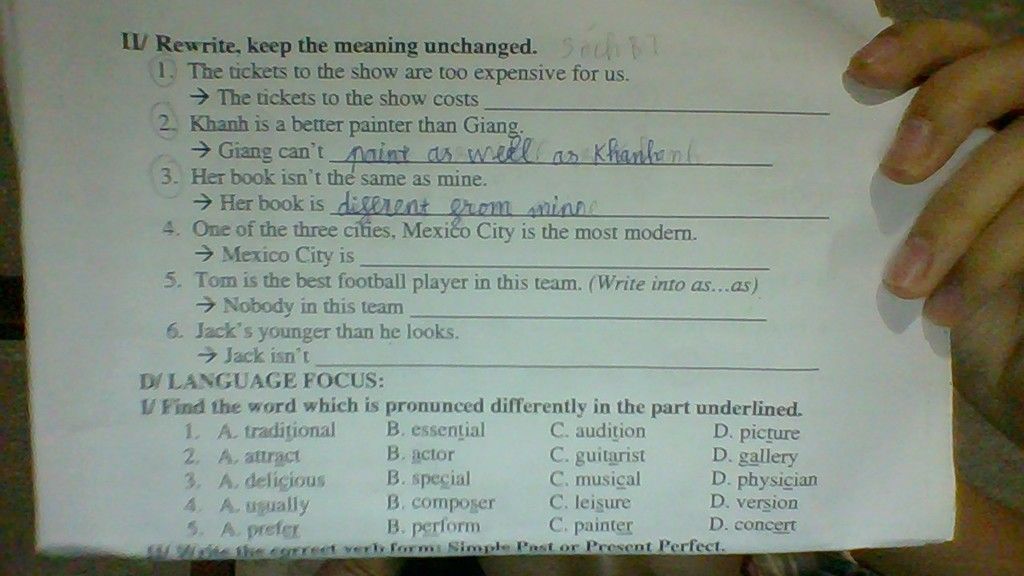 II/ Rewrite, keep the meaning unchanged. Sách BT
1. The tickets to the show are too expensive for us.
→ The tickets to the show costs
2. Khanh is a better painter than Giang.
→ Giang can't paint as well as Khanh
3. Her book isn't the same as mine.
→ Her book is different from mine
4. One of the three cities, Mexico City is the most modern.
→ Mexico City is
5. Tom is the best football player in this team. (Write into as...as)
→ Nobody in this team
6. Jack's younger than he looks.
→ Jack isn't
D/ LANGUAGE FOCUS:
I/ Find the word which is pronunced differently in the part underlined.
1. A. traditional B. essential C. audition D. picture
2. A. attract B. actor C. guitarist D. gallery
3. A. delicious B. special C. musical D. physician
4. A. usually B. composer C. leisure D. version
5. A. prefer B. perform C. painter D. concert
II/ Write the correct verb form: Simple Past or Present Perfect.